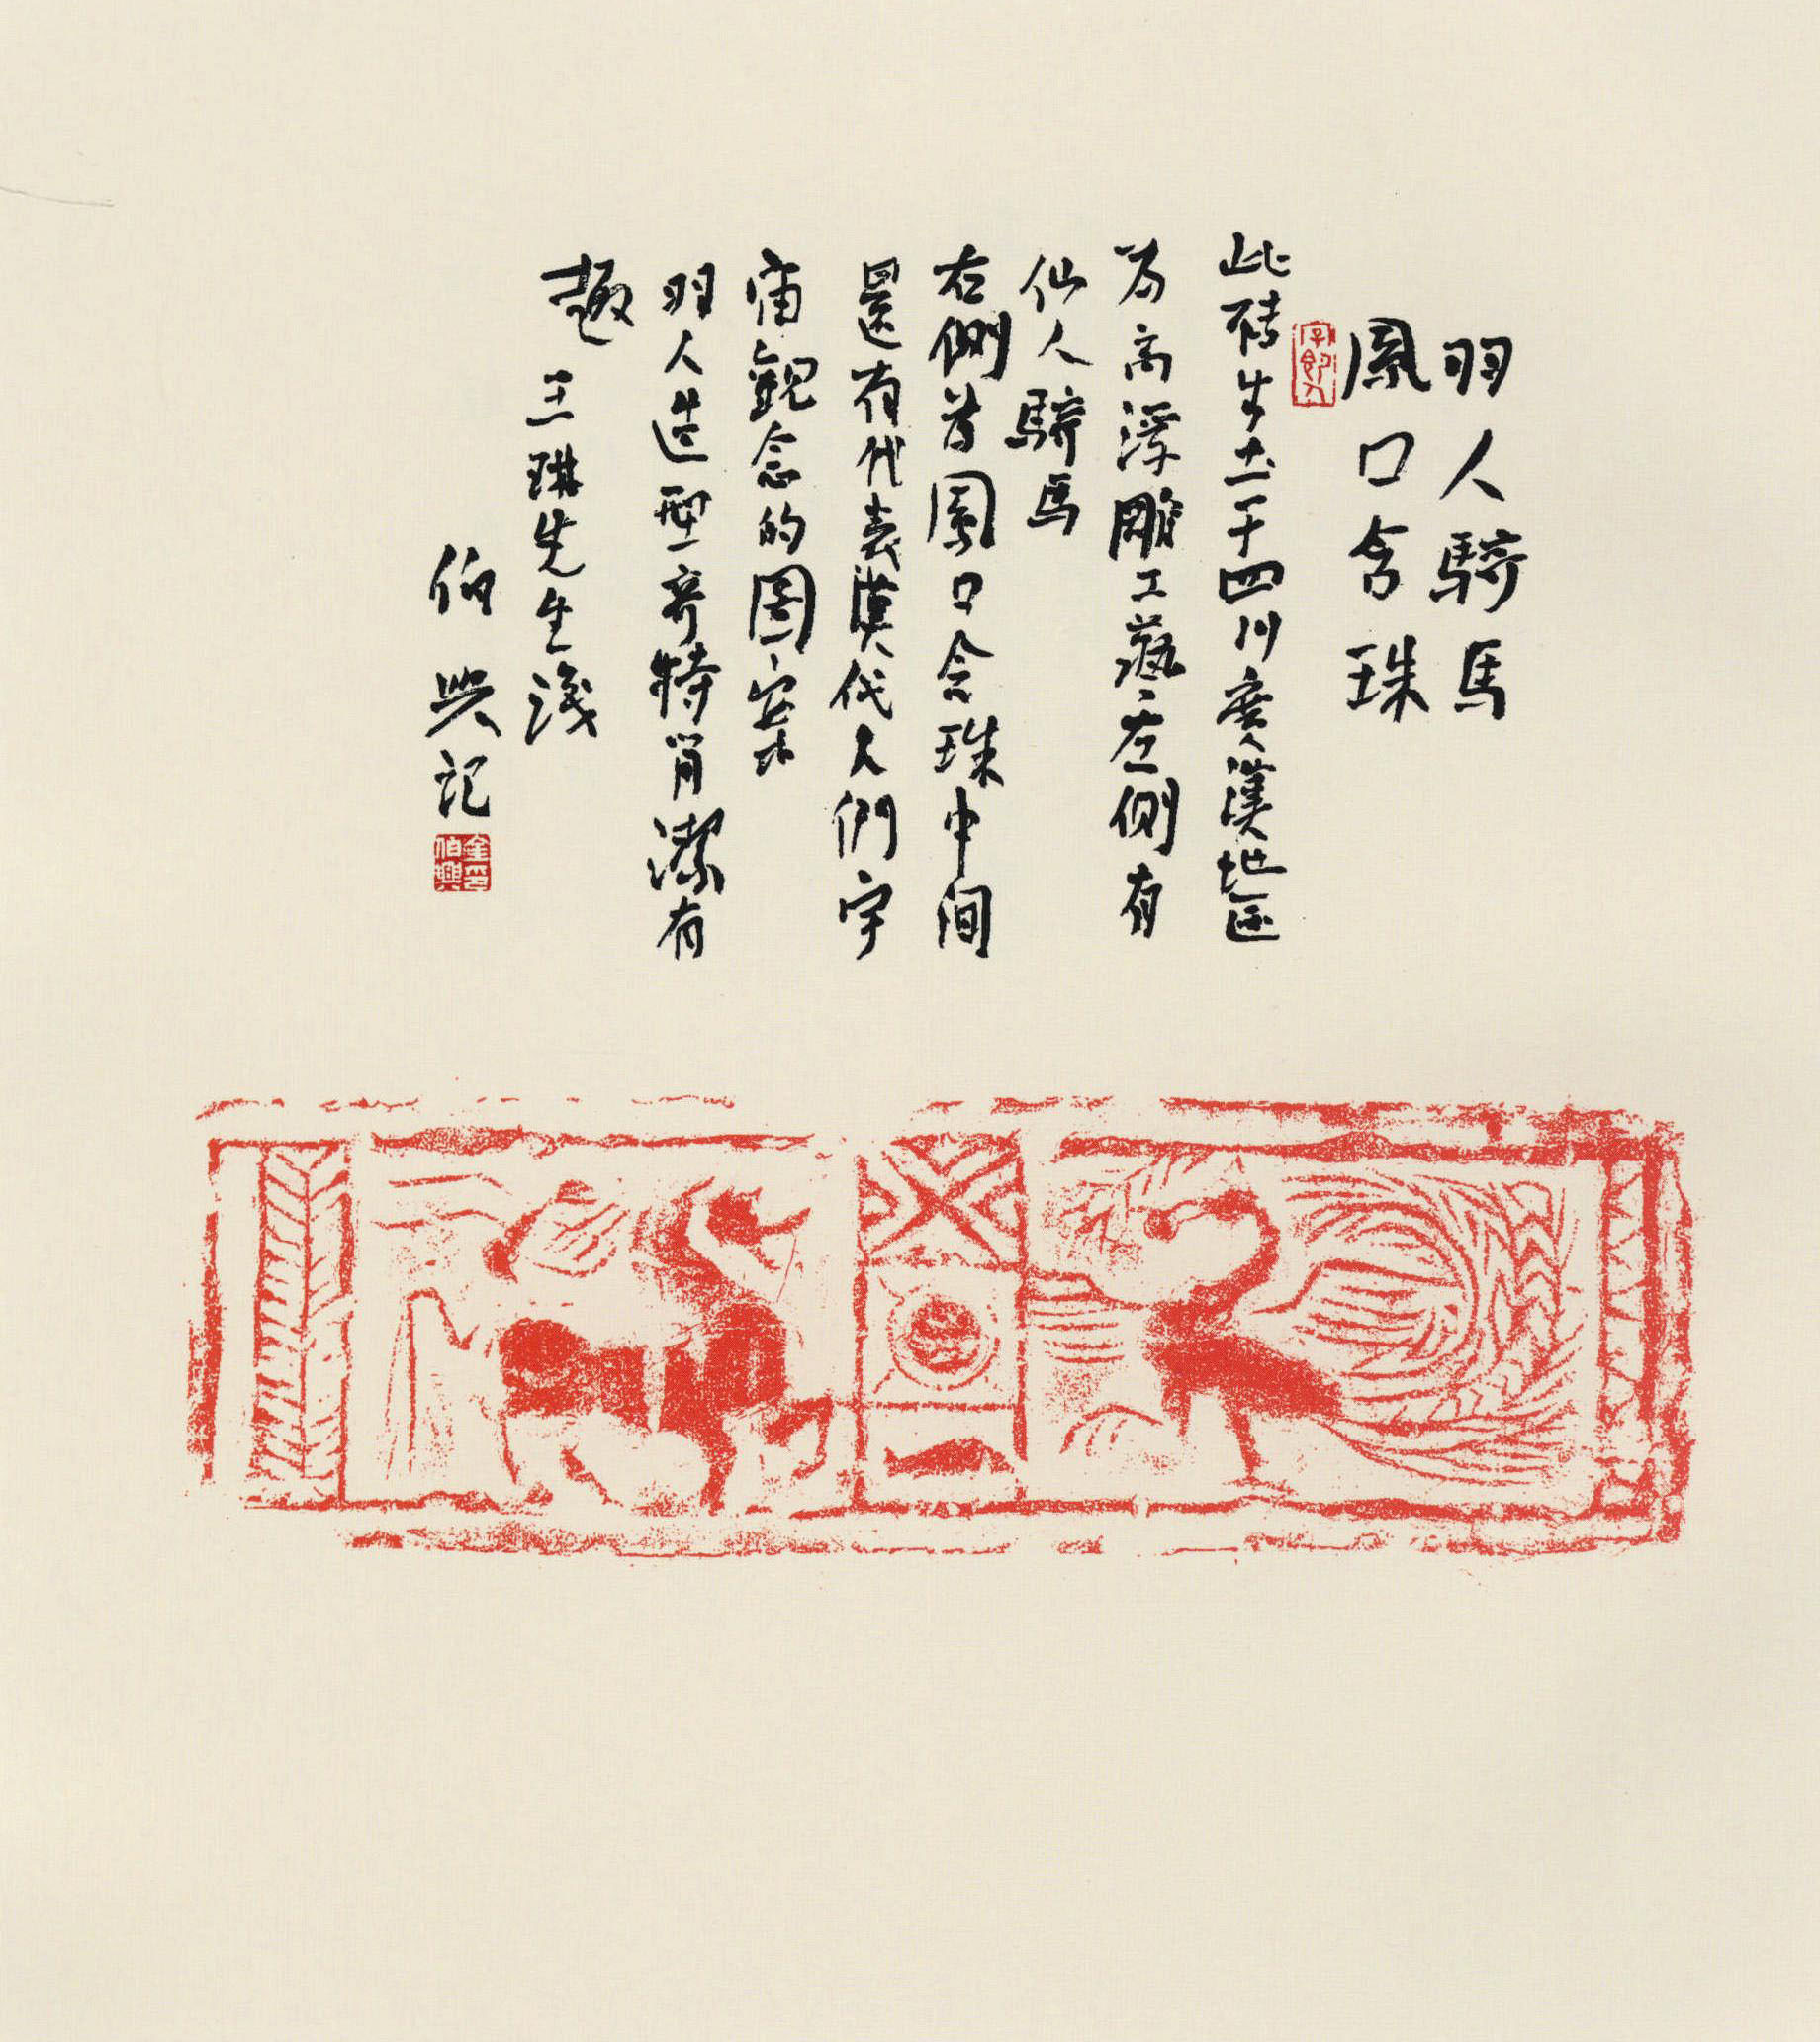 羽人騎馬
鳳口含珠
此磚出土于四川廣漢地区
為高浮雕工藝左側有
仙人騎馬
右側為鳳口含珠中间
還有代表漢代人們宇
宙觀念的图案
羽人造型奇特簡潔有
趣
王琳先生識
伯興記
金伯興印